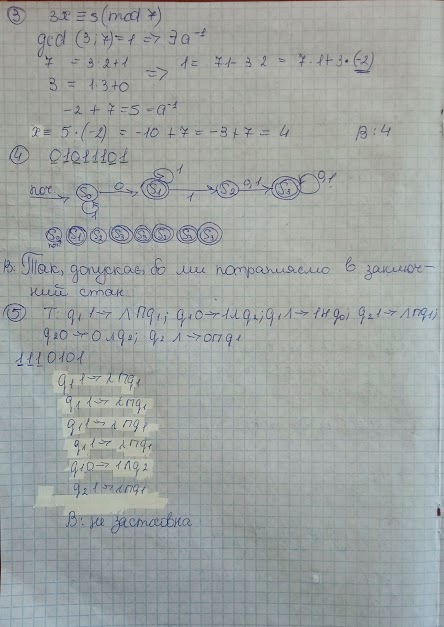 ③ 3x ≡ 5 (mod 7)
gcd (3;7)=1 => ∃ a⁻¹
7 = 3·2+1 => 1 = 7·1-3·2 = 7·1+3·(-2)
3 = 1·3+0
-2 + 7 = 5 = a⁻¹
x = 5·(-2) = -10 + 7 = -3 + 7 = 4 В: 4
④ 01011101
поч. S₀ 0 S₁ 1 S₂ 0,1 S₃ 0,1
1 1
S₀ S₁ S₂ S₃ S₃ S₃ S₃ S₃
В: Так, допускає, бо ми потрапляємо в заключ-
ний стан.
⑤ T: q₁1 → λПq₁; q₁0 → 1Лq₂; q₁λ → 1Нq₀; q₂1 → λПq₁;
q₂0 → 0Лq₂; q₂λ → 0Пq₁
1110101
q₁1 → λПq₁
q₁1 → λПq₁
q₁1 → λПq₁
q₁1 → λПq₁
q₁0 → 1Лq₂
q₂1 → λПq₁
В: не застосовна